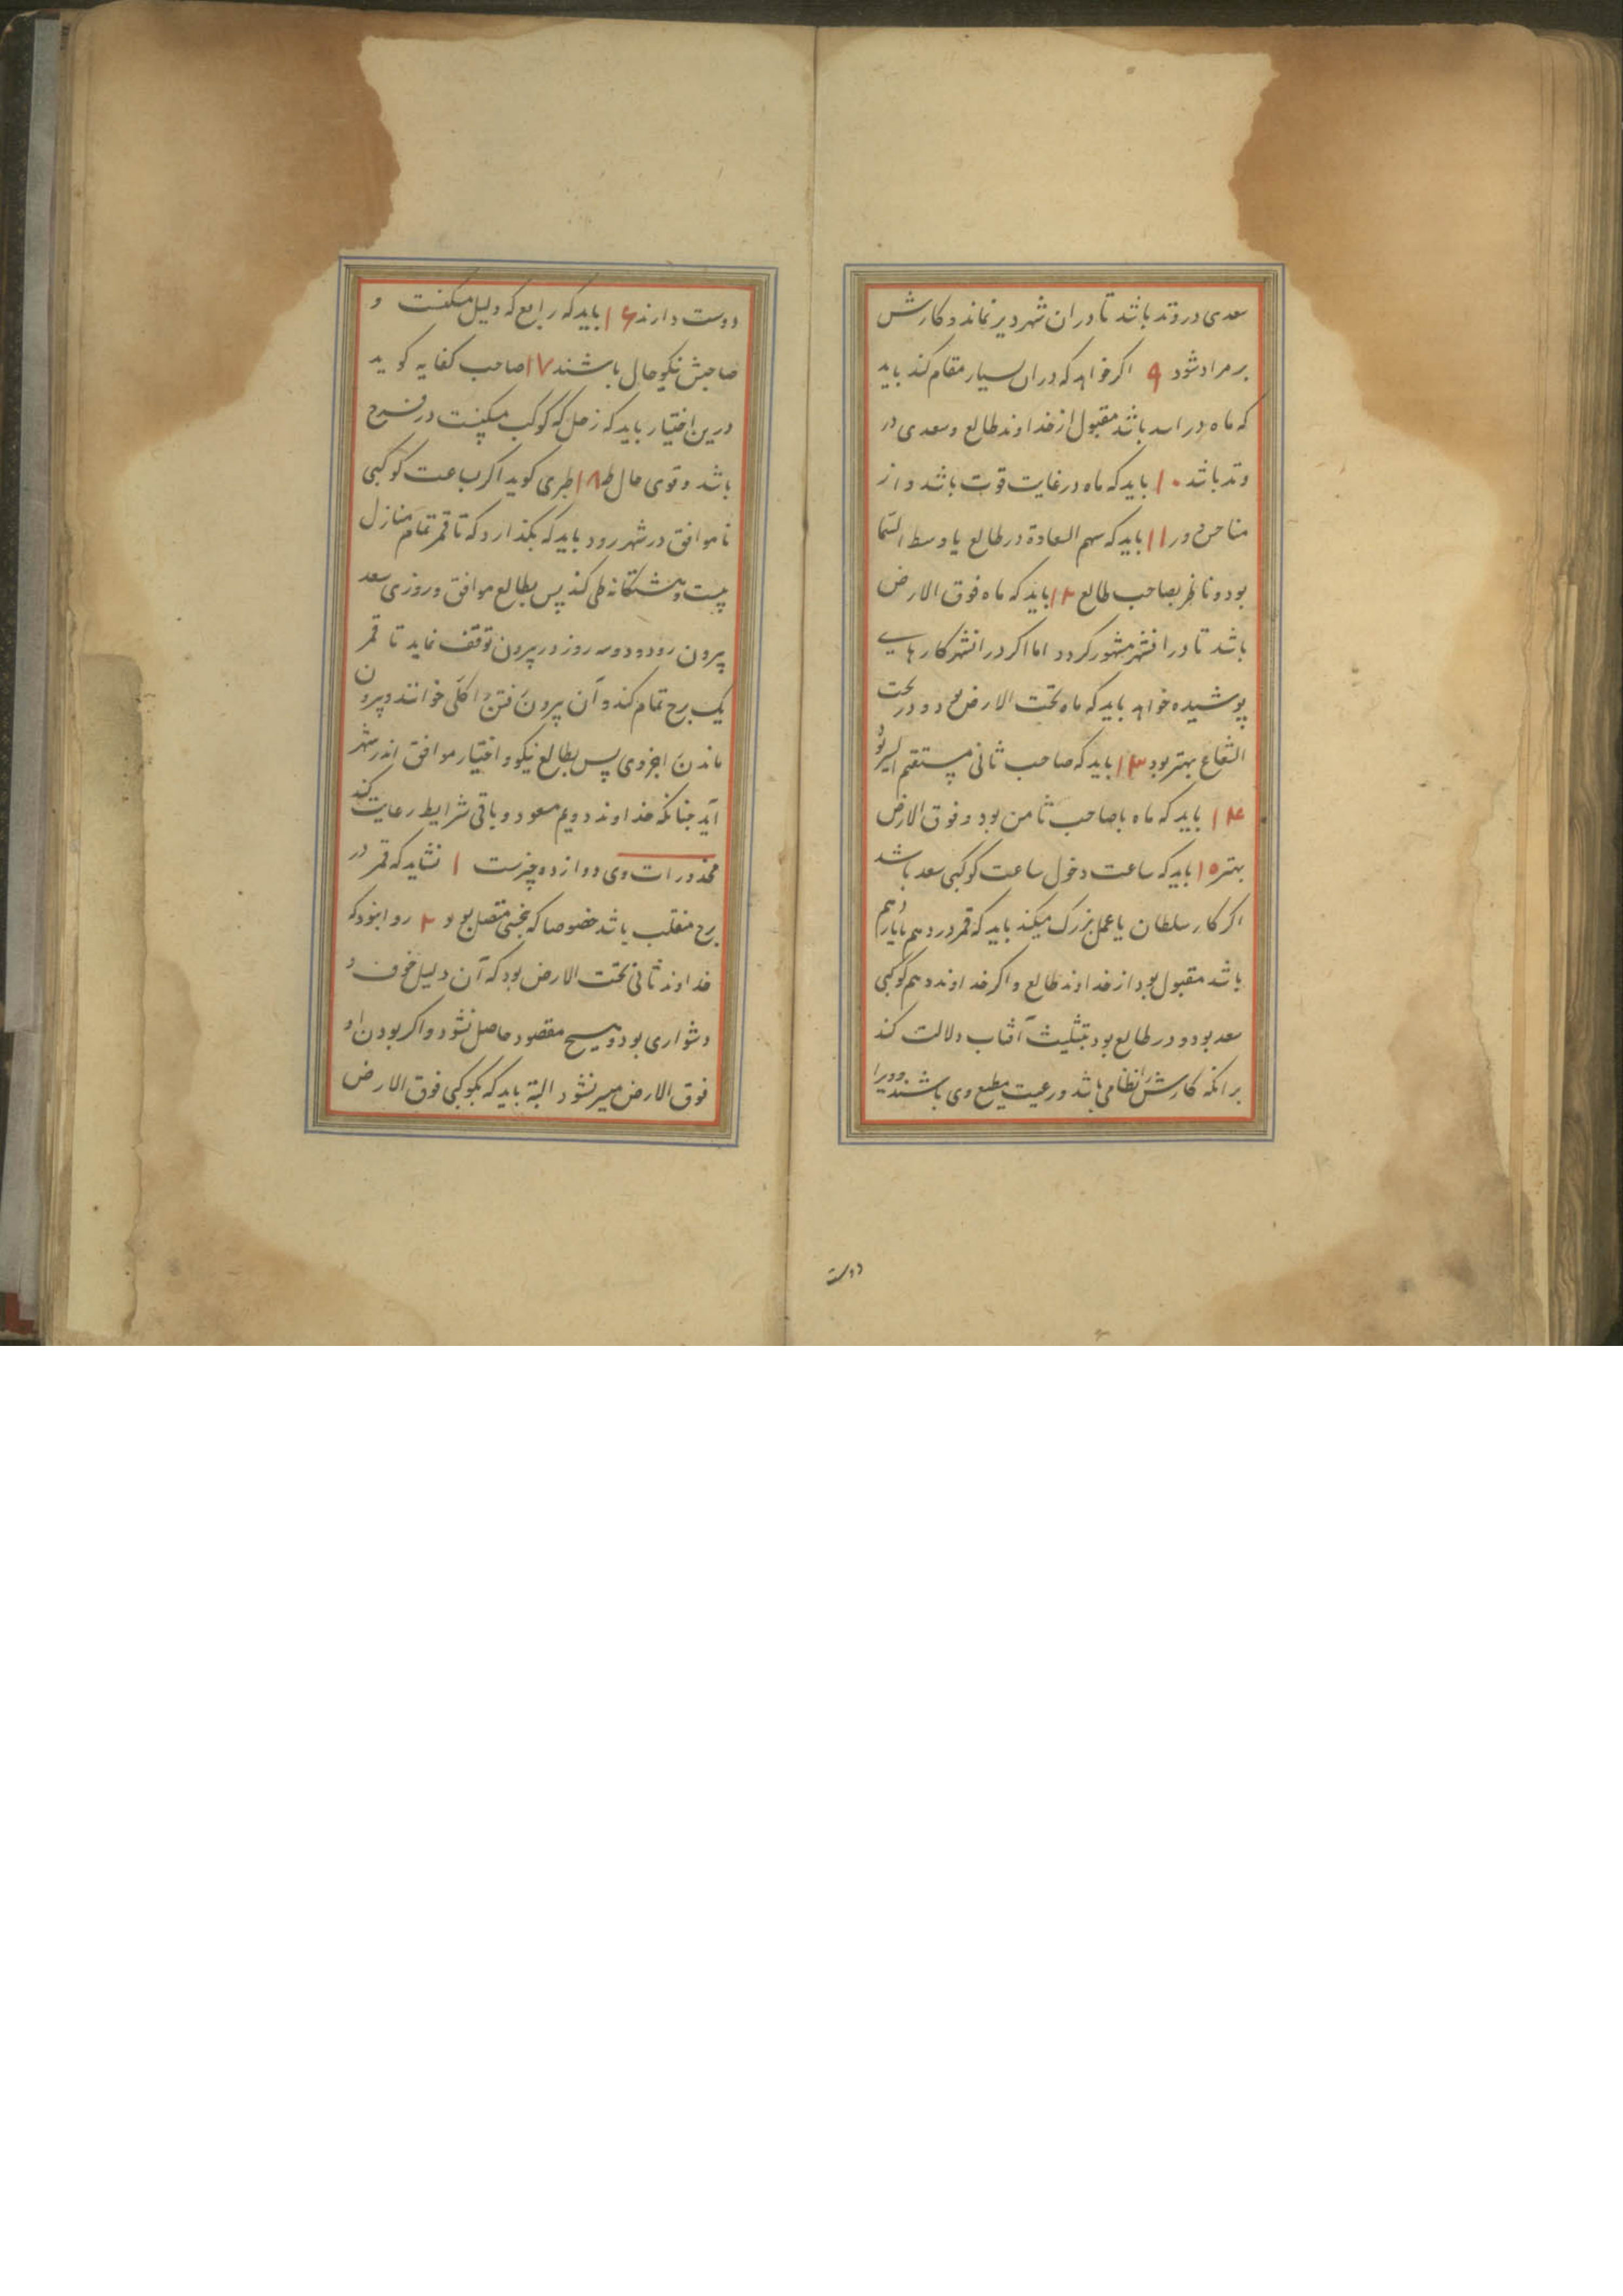 سعدی در وتد باشد تا در ان شهر دیر نماند و کارش
بر مراد شود ۹ اکر خواهد که دران بسیار مقام کند باید
که ماه در اسد باشد مقبول از خداوند طالع و سعدی در
وتد باشد ۱۰ باید که ماه در غایت قوت باشد و از
مناحس دور ۱۱ باید که سهم السعادة در طالع یا وسط السما
بود و ناظر بصاحب طالع ۱۲ باید که ماه فوق الارض
باشد تا در انشهر مشهور کردد اما اکر در انشهر کارهایی
پوشیده خواهد باید که ماه تحت الارض بود و در تحت
الشعاع بهتر بود ۱۳ باید که صاحب ثانی مستقیم السیر بود
۱۴ باید که ماه با صاحب ثامن بود و فوق الارض
بهتر ۱۵ باید که ساعت دخول ساعت کوکبی سعد باشد
اکر کار سلطان یا عمل بزرک میکند باید که قمر در دهم یا یازدهم
باشد مقبول بود از خداوند طالع و اکر خداوند دهم کوکبی
سعد بود و در طالع بود بتثلیث آفتاب دلالت کند
برانکه کارش نظامی باشد و رعیت مطیع وی باشند و ویرا
دوست
دوست دارند ۱۶ باید که رابع که دلیل مسکنست و
صاحبش نیکو حال باشند ۱۷ صاحب کفایه کوید
درین اختیار باید که زحل که کوکب مسکنست در فرح
باشد و قوی حال ۱۸ طبری کوید اکر بساعت کوکبی
ناموافق در شهر رود باید که بکذارد که تا قمر تمام منازل
بیست و هشتکانه طی کند پس بطالع موافق و روزی سعد
بیرون رود و دو سه روز در بیرون توقف نماید تا قمر
یک برج تمام کند و آن بیرون رفتن را کلی خوانند و بیرون
ماندن را جزوی پس بطالع نیکو و اختیار موافق اندر شهر
آید چنانکه خداوند دویم مسعود و باقی شرایط رعایت کند
محذورات وی دوازده چیزست ۱ نشاید که قمر در
برج منقلب باشد خصوصا که بنحسی متصل بود ۲ روا نبود که
خداوند ثانی تحت الارض بود که آن دلیل خوف و
دشواری بود و هیچ مقصود حاصل نشود و اکر بودن او
فوق الارض میسر نشود البته باید که بکوکبی فوق الارض